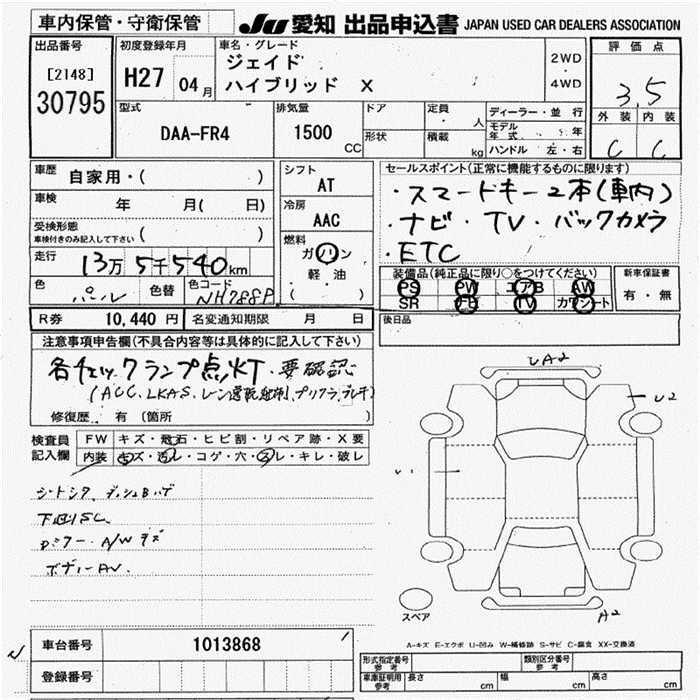 車内保管・守衛保管
JU 愛知 出品申込書 JAPAN USED CAR DEALERS ASSOCIATION
出品番号
[2148]
30795
初度登録年月
H27 04月
車名・グレード
ジェイド
ハイブリッド X
2WD
・
4WD
評価点
3.5
外装 内装
C C
型式
DAA-FR4
排気量
1500
CC
ドア
形状
定員
・ 人
積載
kg
ディーラー・並行
モデル年式 年
ハンドル 左・右
車歴
自家用・( )
車検
年 月( 日)
受検形態
車検付きのみ記入して下さい ( )
走行
13万 5千540km
色
パール
色替
色コード
NH788P
シフト
AT
冷房
AAC
燃料
ガソリン
軽油
( )
セールスポイント(正常に機能するものに限ります)
・スマートキー2本(車内)
・ナビ・TV・バックカメラ
・ETC
装備品(純正品に限り○をつけてください)
PS PW エアB AW
SR ナビ TV カワシート
新車保証書
有・無
R券 10,440 円 名変通知期限 月 日
後日品
注意事項申告欄(不具合内容等は具体的に記入して下さい)
各チェックランプ点灯・要確認
修復歴 有 (箇所 )
検査員
記入欄
FW キズ・飛石・ヒビ割・リペア跡・X要
内装 キズ・汚レ・コゲ・穴・スレ・キレ・破レ
下回りSC
ボディーAV
UA2
U2
A2
スペア
A-キズ E-エクボ U-凹み W-補修跡 S-サビ C-腐食 XX-交換済
車台番号 1013868
登録番号
形式指定番号
参考
類別区分番号
参考
車庫証明用
参考
長さ cm 幅 cm 高さ cm